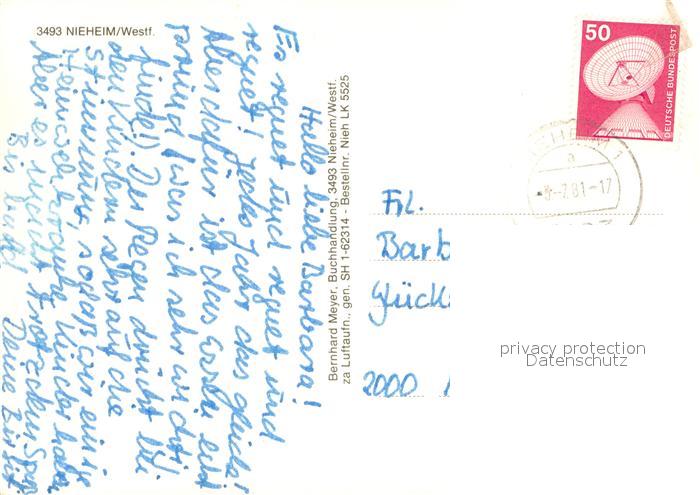 3493 NIEHEIM/Westf.
Hallo liebe Barbara!
Es regnet und regnet und
regnet! Jedes Jahr das gleiche!
Aber dafür ist das Essen echt
prima (was ich sehr wichtig
finde!). Der Regen drückt bei
den Kindern sehr auf die
Stimmung, sodaß wir einige
Heimwehkranke Kinder haben.
Aber es macht trotzdem Spaß
Bis bald!
Deine
Bernhard Meyer, Buchhandlung, 3493 Nieheim/Westf.
za Luftaufn., gen. SH 1-62314 - Bestellnr. Nieh LK 5525
50
DEUTSCHE BUNDESPOST
a
81-17
Frl.
Barb
Glück
2000
privacy protection
Datenschutz